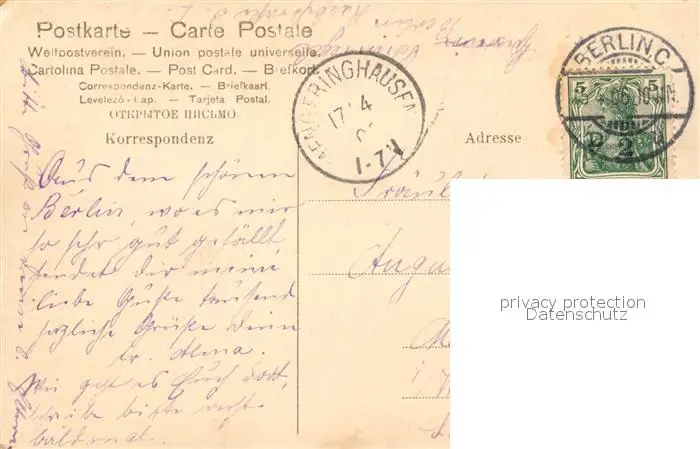 Postkarte — Carte Postale
Weltpostverein. — Union postale universelle.
Cartolina Postale. — Post Card. — Briefkort.
Correspondenz-Karte. — Briefkaart.
Levelező-Lap. — Tarjeta Postal.
ОТКРЫТОЕ ПИСЬМО.
Korrespondenz
Adresse
MENGERINGHAUSEN
17 4
1-7 V
BERLIN C
2
5 5
Aus dem schönen
Berlin, wo es mir
so sehr gut gefällt
sendet dir meine
liebe Guste tausend
herzliche Grüße deine
Fr. Alma.
Wie geht es Euch dort,
schreibe bitte recht
bald mal.
Fräul
Augu
privacy protection
Datenschutz